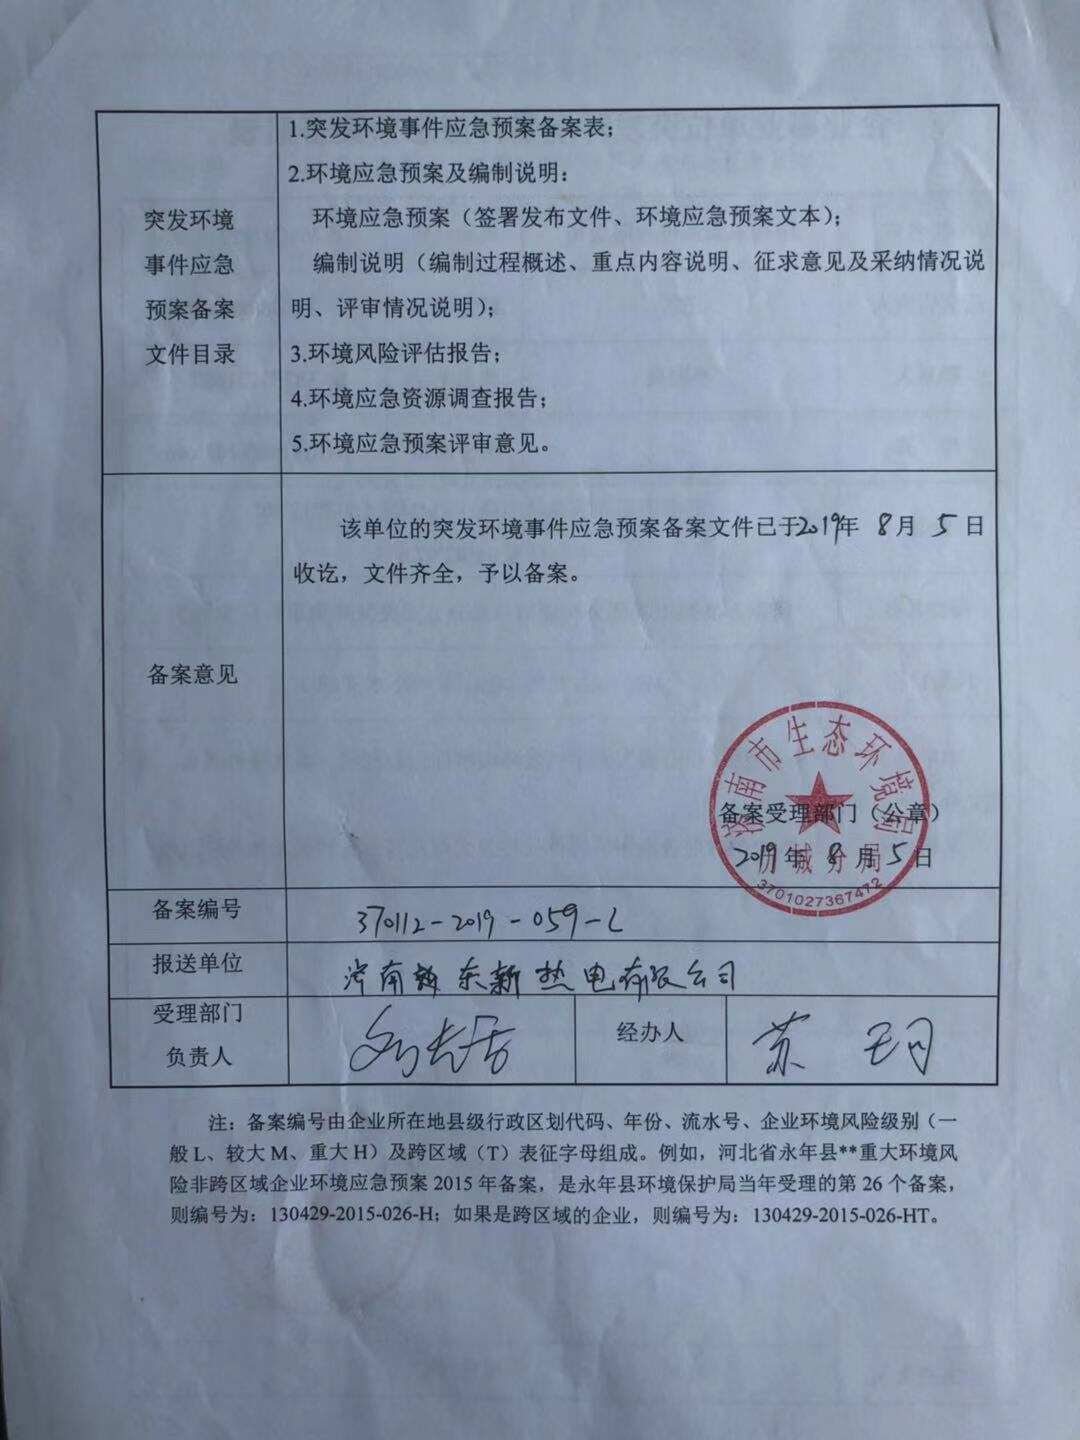 突发环境
事件应急
预案备案
文件目录
1.突发环境事件应急预案备案表；
2.环境应急预案及编制说明：
环境应急预案（签署发布文件、环境应急预案文本）；
编制说明（编制过程概述、重点内容说明、征求意见及采纳情况说
明、评审情况说明）；
3.环境风险评估报告；
4.环境应急资源调查报告；
5.环境应急预案评审意见。
备案意见
该单位的突发环境事件应急预案备案文件已于2019年 8月 5日
收讫，文件齐全，予以备案。
济南市生态环境局
历城分局
3701027367472
备案受理部门（公章）
2019年 8月 5日
备案编号
370112-2019-059-L
报送单位
济南 东新热电有限公司
受理部门
负责人
经办人
苏
注：备案编号由企业所在地县级行政区划代码、年份、流水号、企业环境风险级别（一
般 L、较大 M、重大 H）及跨区域（T）表征字母组成。例如，河北省永年县**重大环境风
险非跨区域企业环境应急预案 2015 年备案，是永年县环境保护局当年受理的第 26 个备案，
则编号为：130429-2015-026-H；如果是跨区域的企业，则编号为：130429-2015-026-HT。